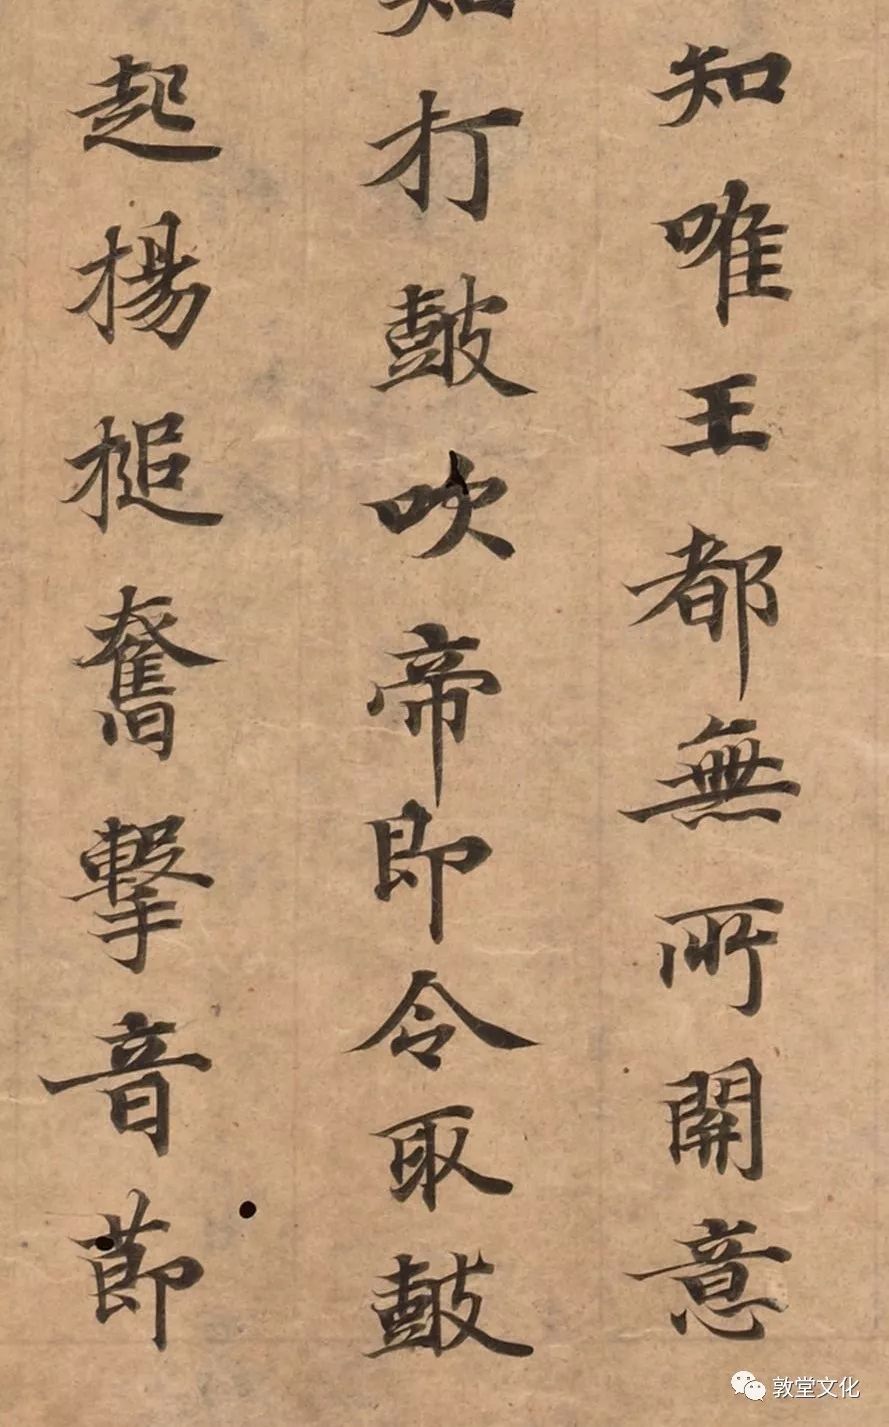 知唯王都無所開意
知打皷吹帝即令取皷
起揚槌奮擊音節
敦堂文化